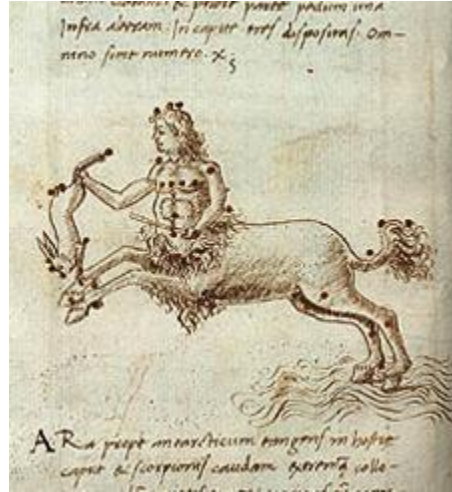 & priore parte pedum una
Infra alteram. In capite tres dispositas. Om-
nino sunt numero. x
ARa prope antarcticum tangens in hostie
caput & scorpionis caudam extrema collo-